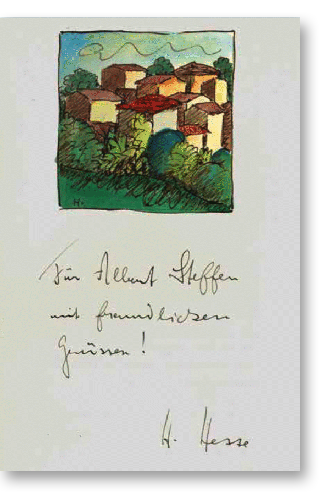 H.
Für Albert Steffen
mit freundlichen
Grüssen!
H. Hesse